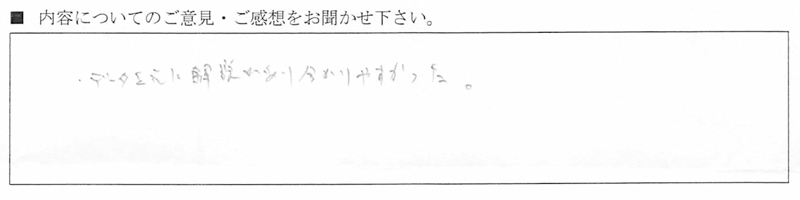 ■ 内容についてのご意見・ご感想をお聞かせ下さい。
・データを元に解説があり分かりやすかった。